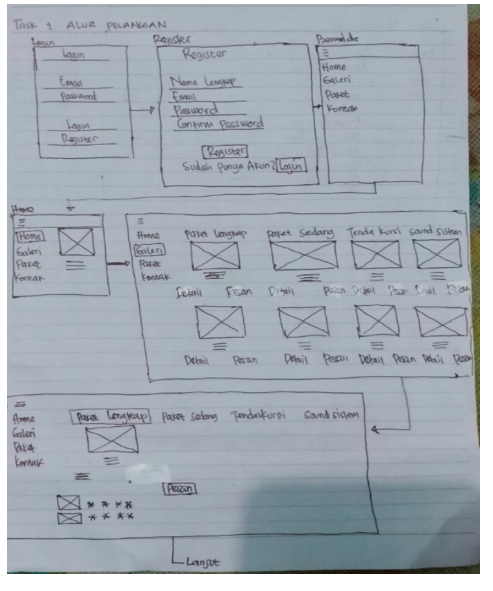 Task 1 ALUR PELANGGAN
Login
Login
Email
Password
Login
Register
Register
Register
Nama Lengkap
Email
Password
Confirm Password
Register
Sudah Punya Akun? Login
Home
Galeri
Paket
Kontak
Home
Home
Galeri
Paket
Kontak
Home
Galeri
Paket
Kontak
Paket Lengkap Paket Sedang Tenda Kursi Sound Sistem
Detail Pesan Detail Pesan Detail Pesan Detail Pesan
Detail Pesan Detail Pesan Detail Pesan Detail Pesan
Home
Galeri
Paket
Kontak
Paket Lengkap Paket Sedang Tenda Kursi Sound Sistem
Pesan
Lanjut